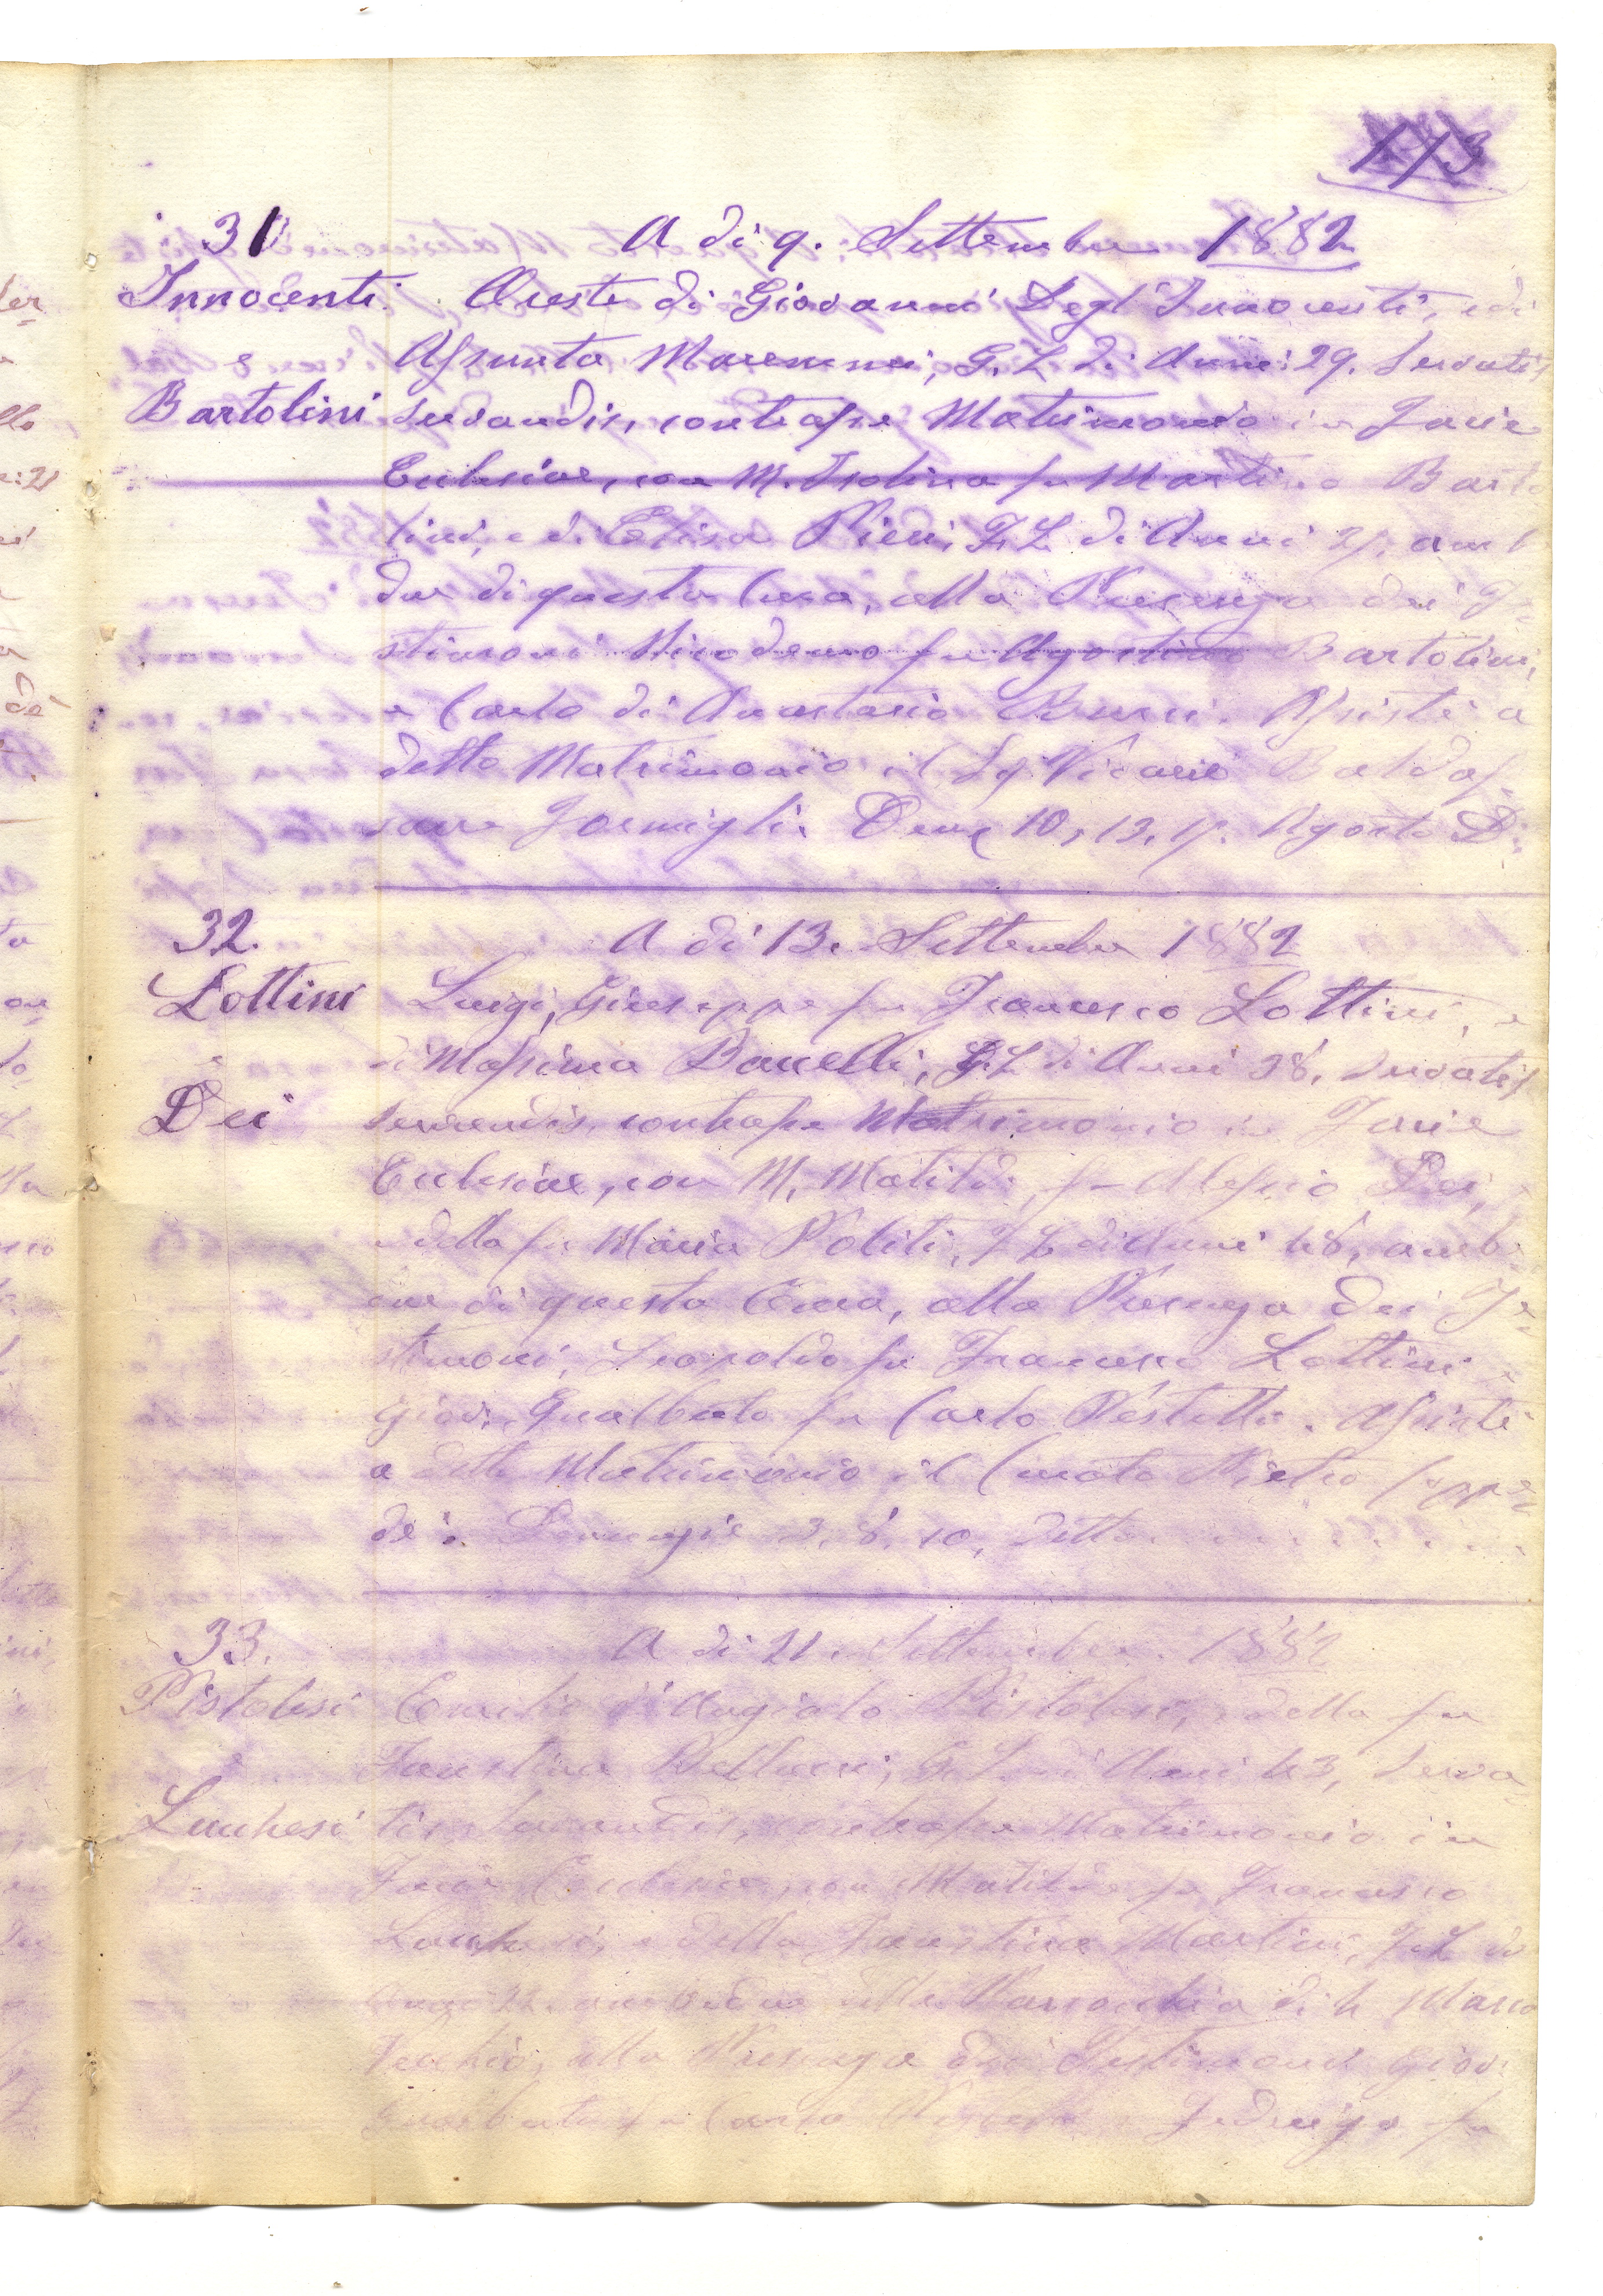 173
31 A dì 9. Settembre 1882
Innocenti Oreste di Giovanni Degl'Innocenti, e di
e Assunta Maremmi, G. L. di Anni 29. Servatis
Bartolini servandis, contrasse Matrimonio in Facie
Eclesiae, con M. Isolina fu Martino Barto
lini, e di Elisa Pieri, F. L. di Anni amb
due di questa Cura, alla Presenza dei Te=
stimoni Nicodemo fu Agostino Bartolini,
e Carlo di Anastasio Bucci. Assistè a
detto Matrimonio il Sg. Vicario Baldas=
sarre Formigli. Denz 10, 13, 17. Agosto D:
32. A dì 13. Settembre 1882
Lottini Luigi, Giuseppe fu Francesco Lottini, e
e di Massima Banelli, G. L. di Anni 38, Servatis
Dei servandis, contrasse Matrimonio in Facie
Eclesiae, con M. Matilde, fu Alessio Dei,
e della fu Maria Politi, F. L. di Anni 48, amb
due di questa Cura, alla Presenza dei Te=
stimoni, Leopoldo fu Francesco Lottini e
Giov. Gualberto fu Carlo Pestelli. Assistè
a detto Matrimonio il Curato Pietro
Denunzie 3, 8, 10, detto
33. A dì 21. Settembre. 1882
Pistolesi Emilio di Angiolo Pistolesi, e della fu
e Faustina G. L. di Anni 43, Serva=
Luchesi tis Servandis, contrasse Matrimonio in
Facie Eclesiae, con Matilde fu Francesco
Luchesi, e della Faustina Martini, F. L. di
Anni 22. ambedue della Parrochia di S. Marco
Vecchio, alla Presenza dei Testimoni Giov.
Gualberto fu Carlo Pestelli e Federigo fu